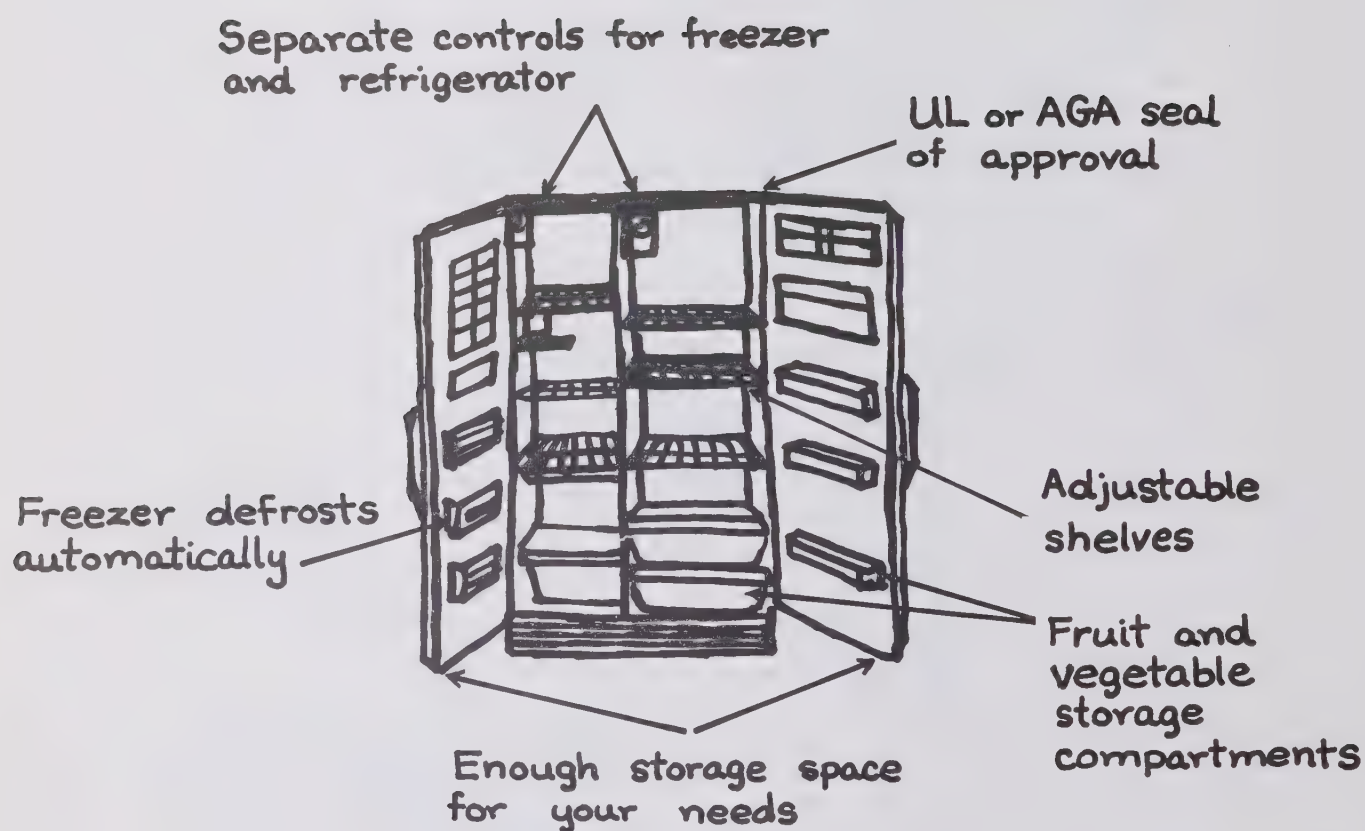 Separate controls for freezer
and refrigerator
UL or AGA seal
of approval
Freezer defrosts
automatically
Adjustable
shelves
Fruit and
vegetable
storage
compartments
Enough storage space
for your needs